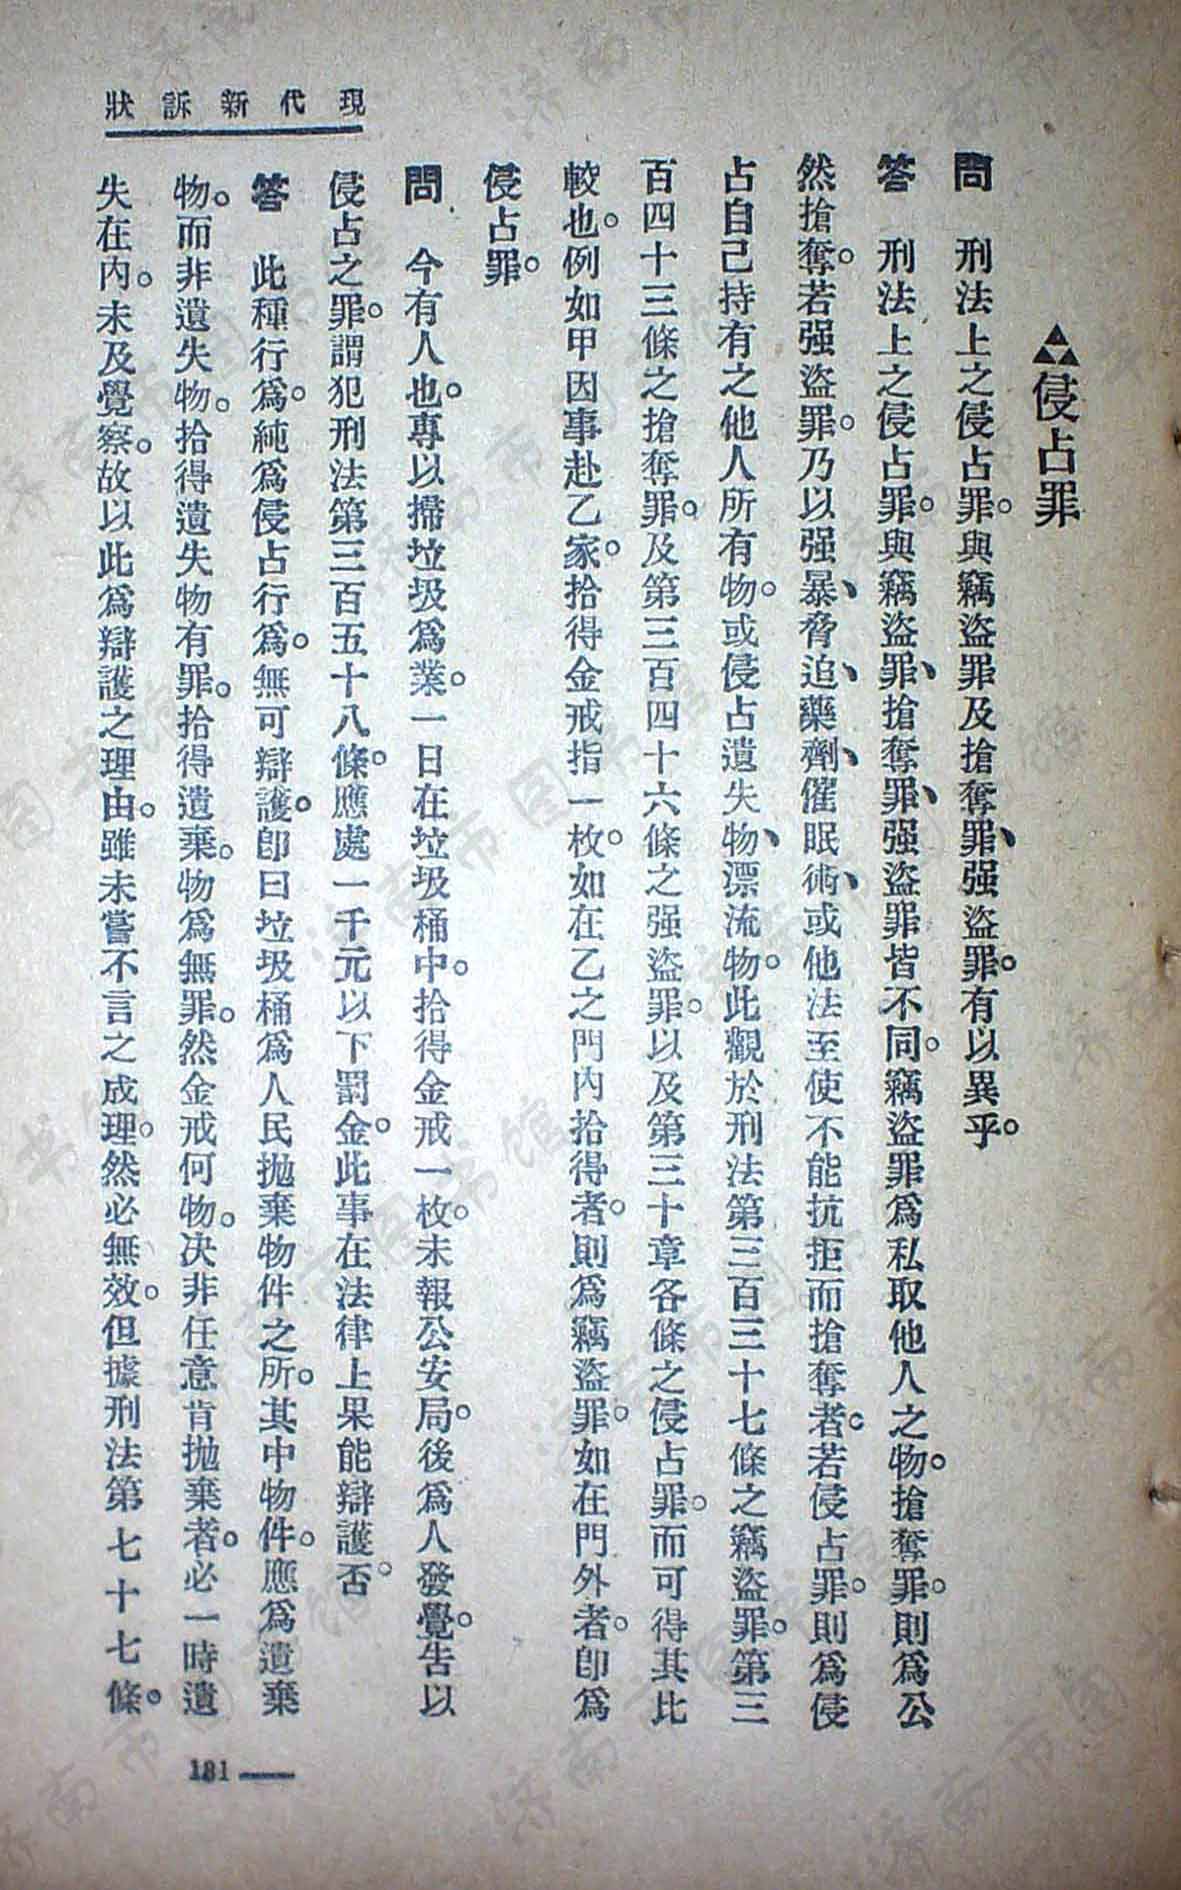 現代新訴狀
侵占罪
問　刑法上之侵占罪。與竊盜罪及搶奪罪、强盜罪。有以異乎。
答　刑法上之侵占罪。與竊盜罪、搶奪罪、强盜罪皆不同。竊盜罪爲私取他人之物。搶奪罪。則爲公
然搶奪。若强盜罪。乃以强暴、脅迫、藥劑、催眠術、或他法至使不能抗拒而搶奪者。若侵占罪。則爲侵
占自己持有之他人所有物。或侵占遺失物、漂流物。此觀於刑法第三百三十七條之竊盜罪。第三
百四十三條之搶奪罪。及第三百四十六條之强盜罪。以及第三十章各條之侵占罪。而可得其比
較也。例如甲因事赴乙家。拾得金戒指一枚。如在乙之門內拾得者。則爲竊盜罪。如在門外者。卽爲
侵占罪。
問　今有人也。專以掃垃圾爲業。一日在垃圾桶中。拾得金戒一枚。未報公安局。後爲人發覺。告以
侵占之罪。謂犯刑法第三百五十八條。應處一千元以下罰金。此事在法律上果能辯護否。
答　此種行爲。純爲侵占行爲。無可辯護。卽曰垃圾桶爲人民拋棄物件之所。其中物件。應爲遺棄
物。而非遺失物。拾得遺失物有罪。拾得遺棄。物爲無罪。然金戒何物。决非任意肯拋棄者。必一時遺
失在內。未及覺察。故以此爲辯護之理由。雖未嘗不言之成理。然必無效。但據刑法第七十七條。
181
济南市图书馆